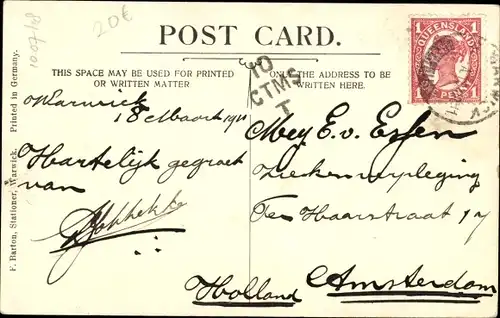 10.07/18
20€
POST CARD.
THIS SPACE MAY BE USED FOR PRINTED
OR WRITTEN MATTER
ONLY THE ADDRESS TO BE
WRITTEN HERE.
10
CTMS
T
QUEENSLAND
1 PENNY 1
F. Barton, Stationer, Warwick. Printed in Germany.
Warwick
18 Maart 1911
Hartelijk gegroet
van
Mej E. v. Essen
Ziekenverpleging
Ter Haarstraat 17
Amsterdam
Holland